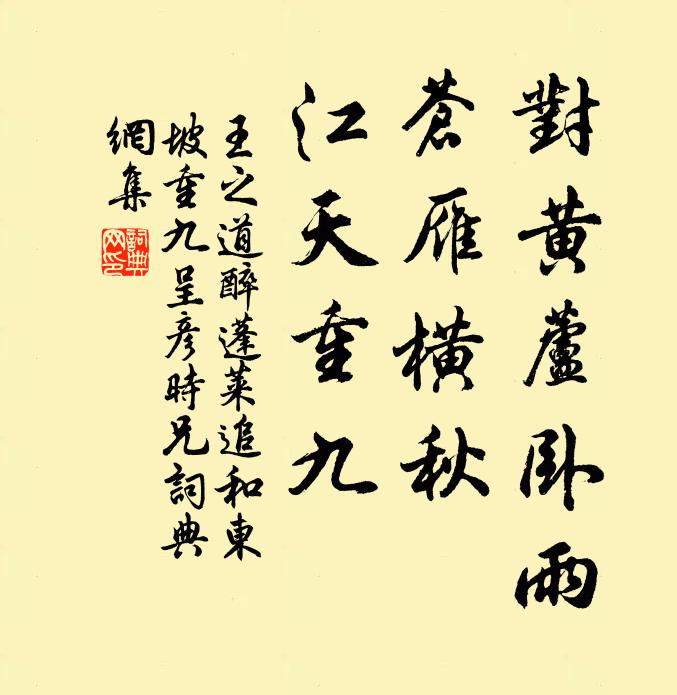 對黃蘆卧雨
蒼雁橫秋
江天重九
王之道醉蓬萊追和東
坡重九呈彥時兄詞典
網集
詞典網印